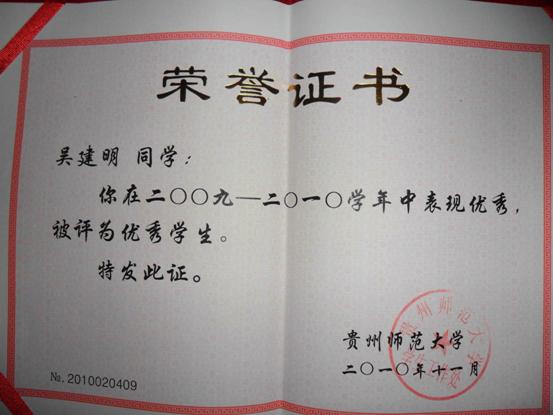 荣誉证书
吴建明 同学：
你在二〇〇九—二〇一〇学年中表现优秀，
被评为优秀学生。
特发此证。
贵州师范大学
二〇一〇年十一月
贵州师范大学
学生工作处
№.2010020409